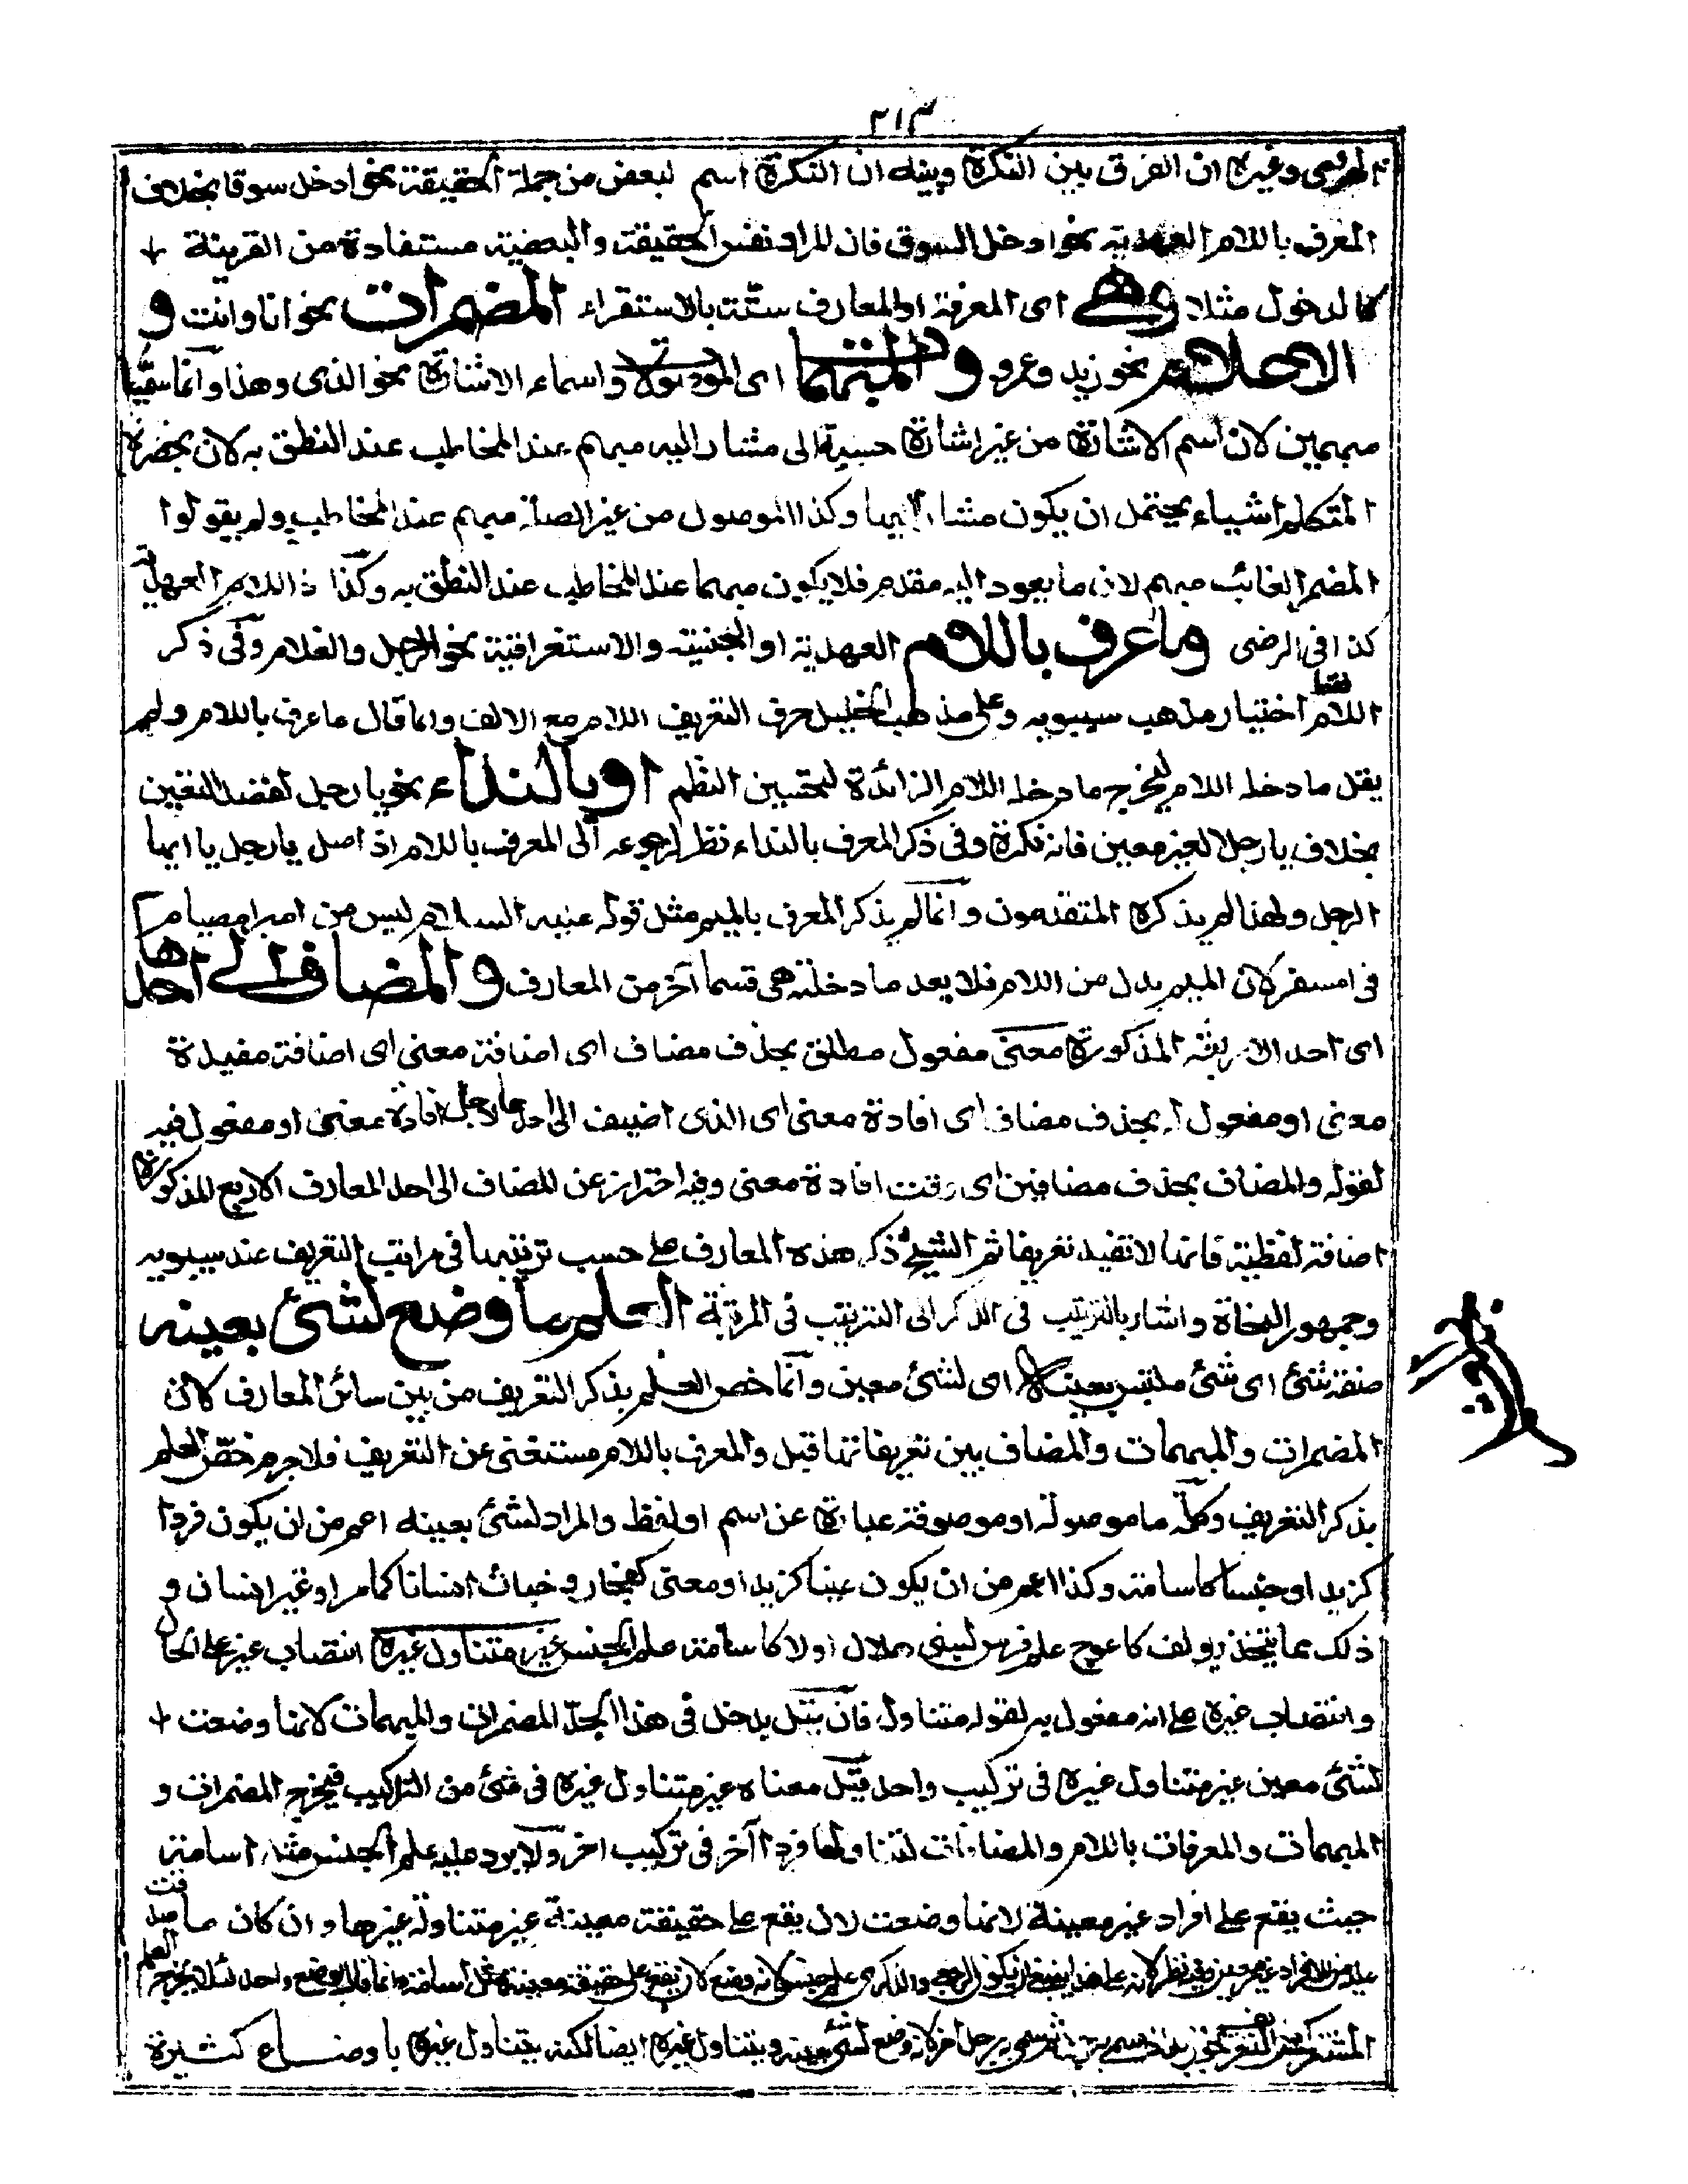 ٢١٣
وغيره ان الفرق بين النكرة وبينه ان النكرة اسم لبعض من جملة الحقيقة نحو ادخل سوقا بخلاف
المعرف باللام العهدية نحو ادخل السوق فان المراد نفس الحقيقة والبعضية مستفادة من القرينة
كالدخول مثلا وهي اى المعرفة او المعارف ستة بالاستقراء المضمرات نحو انا وانت و
الاعلام نحو زيد وعمرو والمبهمات اى الموصولات واسماء الاشارة نحو الذى وهذا وانما سميا
مبهمين لان اسم الاشارة من غير اشارة حسية الى مشار اليه مبهم عند المخاطب عند النطق به لان بحضرة
المتكلم اشياء يحتمل ان يكون مشارا اليها وكذا الموصول من غير الصلة مبهم عند المخاطب ولم يقولوا
المضمر الغائب مبهم لان ما يعود اليه مقدم فلا يكون مبهما عند المخاطب عند النطق به وكذا ذا اللام العهدية
كذا فى الرضى وما عرف باللام العهدية او الجنسية والاستغراقية نحو الرجل والغلام وفى ذكر
اللام فقط اختيار مذهب سيبويه وعلى مذهب الخليل حرف التعريف اللام مع الالف وانما قال ما عرف باللام ولم
يقل ما دخله اللام ليخرج ما دخله اللام الزائدة لتحسين النظم او بالنداء نحو يا رجل لقصد التعيين
بخلاف يا رجلا لغير معين فانه نكرة وفى ذكر المعرف بالنداء نظر لرجوعه الى المعرف باللام اذ اصل يا رجل يا ايها
الرجل ولهذا لم يذكره المتقدمون وانما لم يذكر المعرف بالميم مثل قوله عليه السلام ليس من امبر امصيام
فى امسفر لان الميم بدل من اللام فلا يعد ما دخلته هى قسما آخر من المعارف والمضاف الى احدها
اى احد الاربعة المذكورة معنى مفعول مطلق بحذف مضاف اى اضافة معنى اى اضافة مفيدة
معنى او مفعول له بحذف مضاف اى افادة معنى اى الذى اضيف الى احدها لاجل افادة معنى او مفعول فيه
لقوله والمضاف بحذف مضافين اى وقت افادة معنى وفيه احتراز عن المضاف الى احد المعارف الاربع المذكورة
اضافة لفظية فانها لا تفيد تعريفا ثم الشيخ ذكر هذه المعارف على حسب ترتيبها فى مراتب التعريف عند سيبويه
وجمهور النحاة واشار بالترتيب فى الذكر الى الترتيب فى المرتبة العلم ما وضع لشئ بعينه
صفة شئ اى شئ ملتبس بعينه اى لشئ معين وانما خص العلم بذكر التعريف من بين سائر المعارف لان
المضمرات والمبهمات والمضاف بين تعريفاتها قبل والمعرف باللام مستغنى عن التعريف فلا جرم خص العلم
بذكر التعريف وكلمة ما موصولة او موصوفة عبارة عن اسم او لفظ والمراد لشئ بعينه اعم من ان يكون فردا
كزيد او جنسا كاسامة وكذا اعم من ان يكون عينا كزيد او معنى كفجار و خباث انسانا كما مر او غير انسان و
ذلك مما يتخذ ويولف كاعوج علم فرس لبنى هلال او لا كاسامة علم الجنس غير متناول غيره انتصاب غير على الحال
وانتصاب غيره على انه مفعول به لقوله متناول فان قيل يدخل فى هذا الحد المضمرات والمبهمات لانها وضعت
لشئ معين غير متناول غيره فى تركيب واحد قيل معناه غير متناول غيره فى شئ من التراكيب فيخرج المضمرات و
المبهمات والمعرفات باللام والمضافات لتناولها فردا آخر فى تركيب اخر ولا يرد عليه علم الجنس مثل اسامة
حيث يقع على افراد غير معينة لانها وضعت لان يقع على حقيقة معينة غير متناولة غيرها وان كان ما صدقت
عليه من الافراد غير معين وفيه نظر لانه على هذا ينبغى ان يكون الرجعى والذكرى علم جنس لانه وضع لان يقع على حقيقة معينة مثل اسامة وانما قال بوضع واحد لئلا يخرج العلم
المشترك من التعريف نحو زيد اذا سمى به رجل ثم سمى به رجل آخر لانه وضع لشئ بعينه ويتناول غيره ايضا لكنه يتناول غيره باوضاع كثيرة